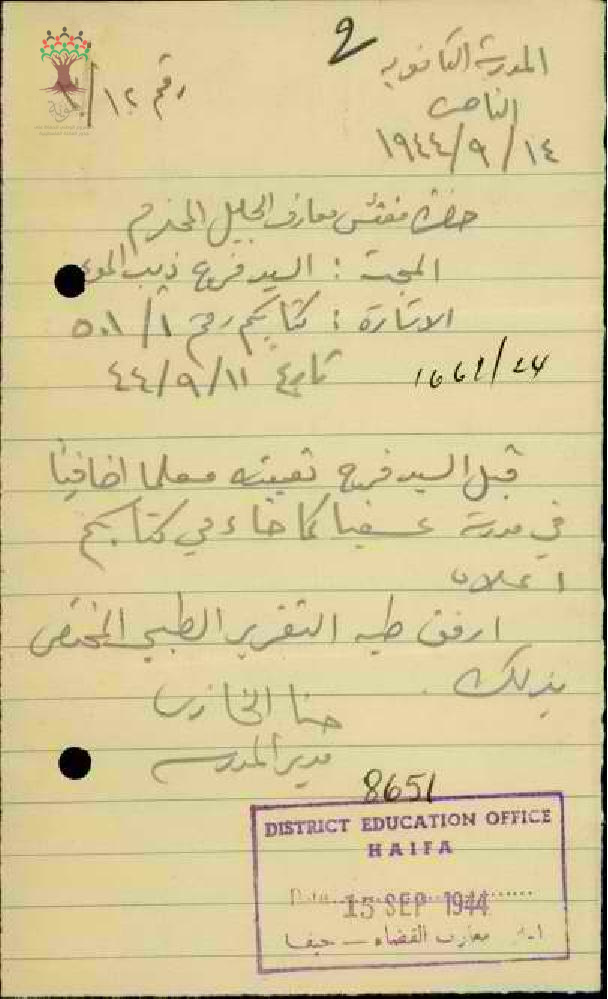 المدرسة الثانوية
9
الناصرة
رقم ١٢/
١٩٤٤/٩/١٤
حضرة مفتش معارف الجليل المحترم
المبحث : السيد فرح ذيب
الاشارة : كتابكم رقم ١/ ٥٠٨
تاريخ ٤٤/٩/١١
1661/24
قبل السيد فرح تعيينه معلما اضافيا
في مدرسة عسفيا كما جاء في كتابكم
اعلاه
ارفق طيه التقرير الطبي المختص
بذلك.
حنا الخازن
مدير المدرسة
8651
DISTRICT EDUCATION OFFICE
HAIFA
Date 15 SEP 1944
معارف القضاء – حيفا